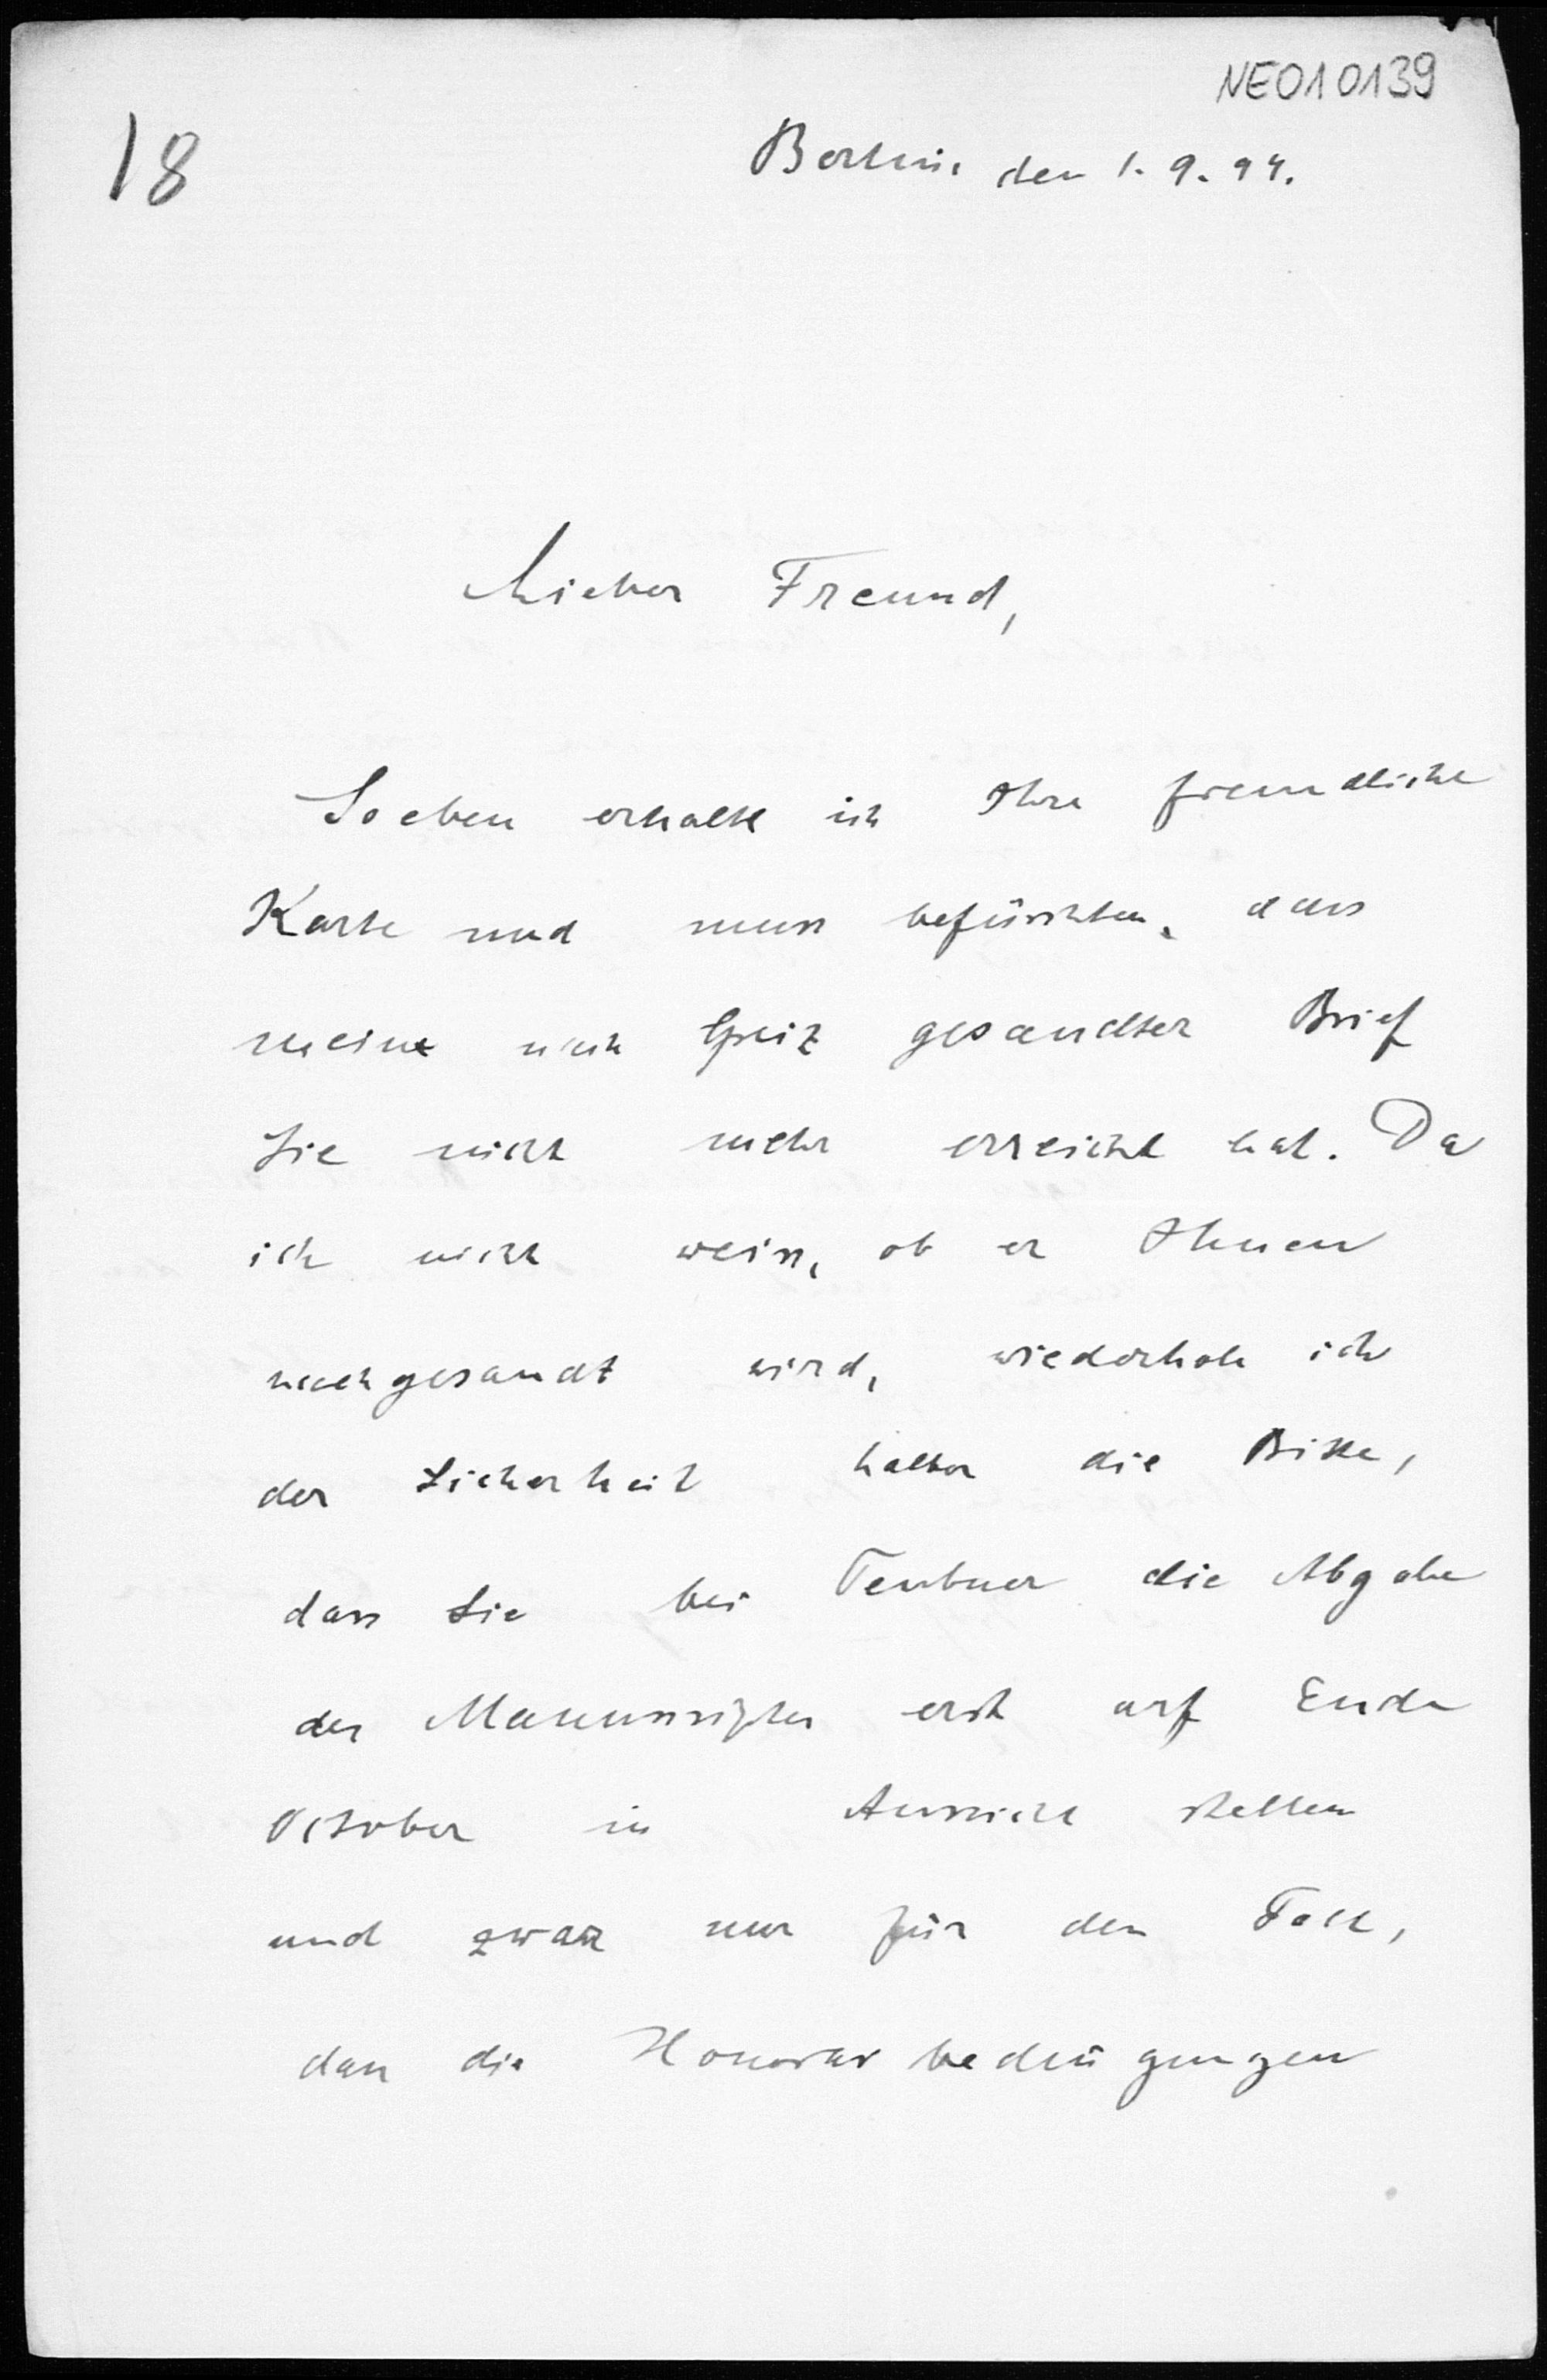 NE010139
18
Berlin, den 1. 9. 94.
Lieber Freund,
Soeben erhalte ich Ihre freundliche
Karte und muss befürchten, dass
mein nach gesandter Brief
Sie nicht mehr erreicht hat. Da
ich nicht weiss, ob er Ihnen
nachgesandt wird, wiederhole ich
der Sicherheit halber die Bitte,
dass Sie bei Teubner die Abgabe
des Manuscriptes erst auf Ende
October in Aussicht stellen
und zwar nur für den Fall,
dass die Honorarbedingungen